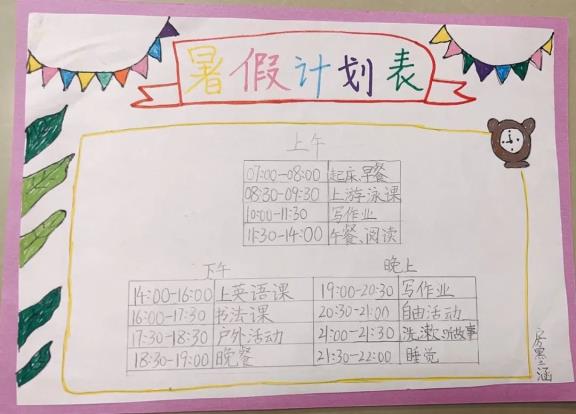 暑假计划表
上午
07:00-08:00 起床、早餐
08:30-09:30 上游泳课
10:00-11:30 写作业
11:30-14:00 午餐、阅读
下午
14:00-16:00 上英语课
16:00-17:30 书法课
17:30-18:30 户外活动
18:30-19:00 晚餐
晚上
19:00-20:30 写作业
20:30-21:00 自由活动
21:00-21:30 洗漱、听故事
21:30-22:00 睡觉